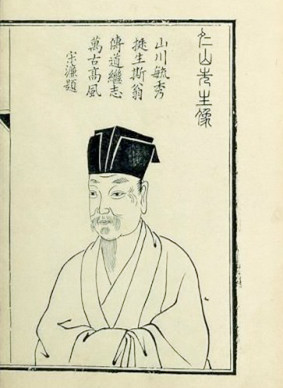 仁山先生像
山川毓秀
挺生斯翁
傳道繼志
萬古高風
宋濂題